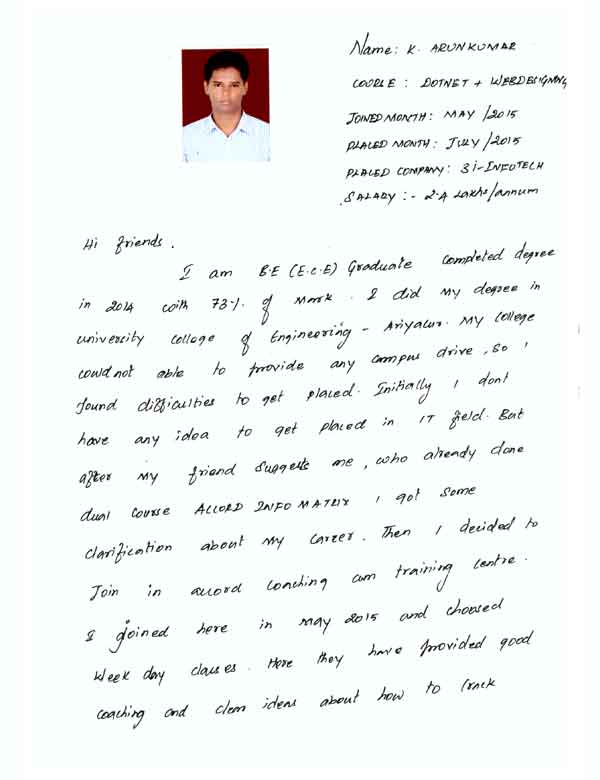 Name: K. ARUNKUMAR
COURSE: DOTNET + WEBDESIGNING
JOINED MONTH: MAY /2015
PLACED MONTH: JULY /2015
PLACED COMPANY: 3i-INFOTECH
SALARY :- 2.4 Lakhs/annum
Hi friends.
I am B.E (E.C.E) Graduate completed degree
in 2014 with 73%. of Mark. I did my degree in
university college of Engineering - Ariyalur. My college
could not able to provide any campus drive, so I
found difficulties to get placed. Initially I dont
have any idea to get placed in IT field. But
after my friend suggests me, who already done
dual course ACCORD INFO MATRIX I got some
clarification about my career. Then I decided to
Join in accord coaching cum training centre.
I joined here in may 2015 and choosed
week day classes. Here they have provided good
coaching and clear ideas about how to crack